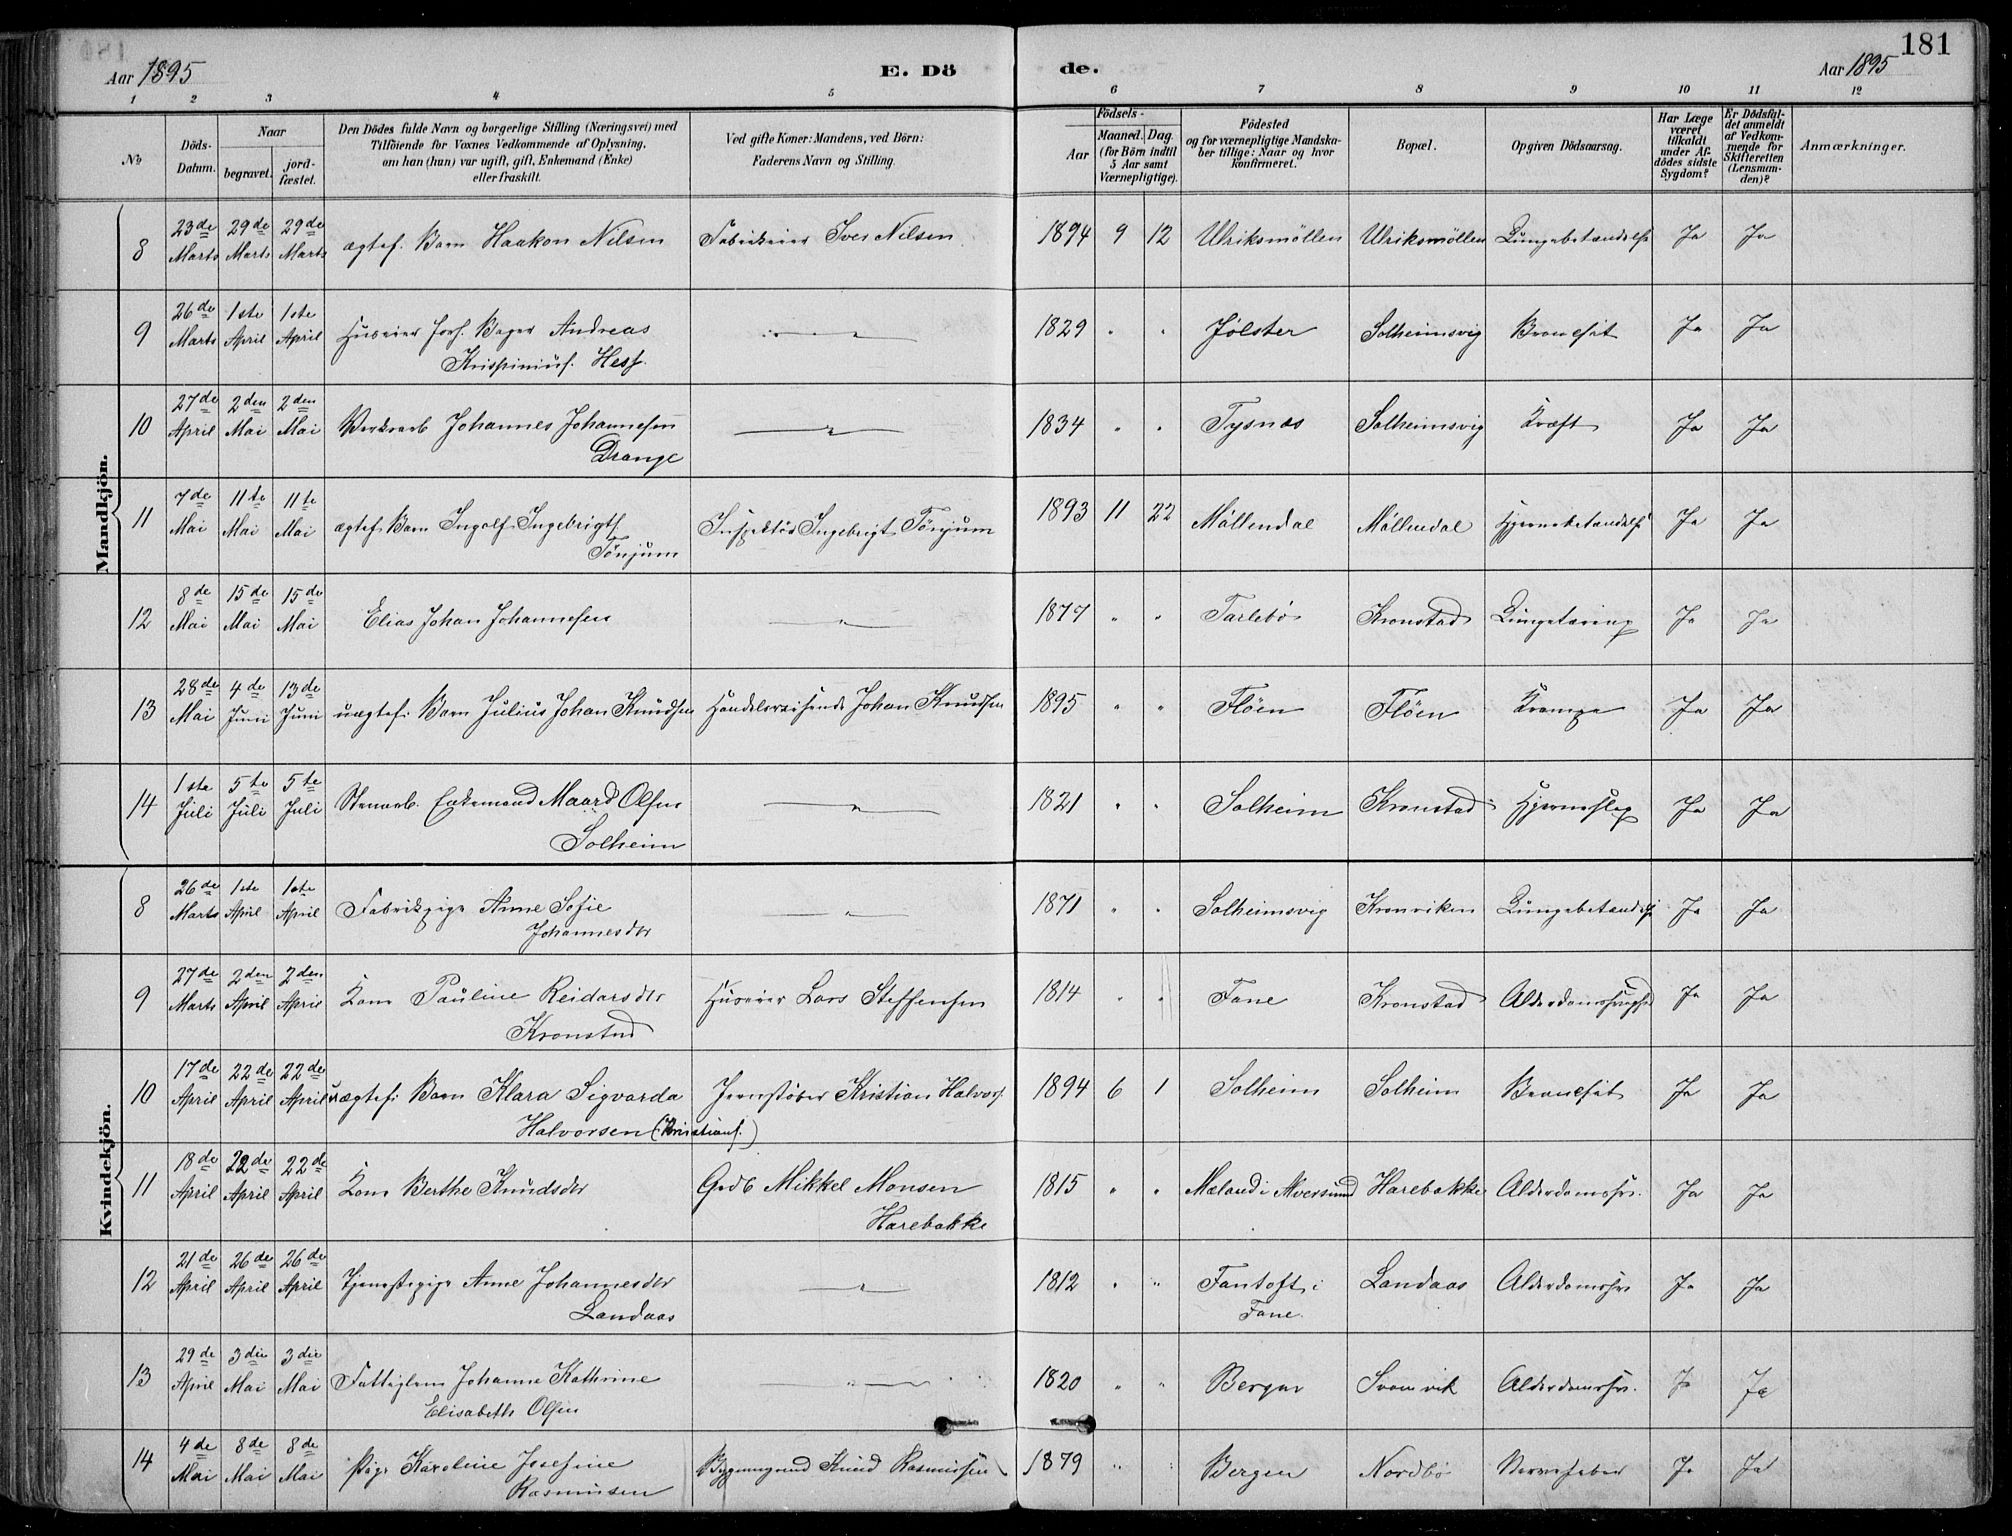 181
Aar 1895
E. Dö
de.
Aar 1895
1 2 3 4 5 6 7 8 9 10 11 12
No
Döds-Datum.
Naar
begravet.
jord-fæstet.
Den Dödes fulde Navn og borgerlige Stilling (Næringsvei) med
Tilföiende for Voxnes Vedkommende af Oplysning,
om han (hun) var ugift, gift, Enkemand (Enke)
eller fraskilt.
Ved gifte Koner: Mandens, ved Börn:
Faderens Navn og Stilling.
Födsels-
Aar
Maaned. Dag.
(for Börn indtil
5 Aar samt
Værnepligtige).
Födested
og for værnepligtige Mandska-
ber tillige: Naar og hvor
konfirmeret.
Bopæl.
Opgiven Dödsaarsag.
Har Læge
været
tilkaldt
under Af-
dödes sidste
Sygdom?
Er Dödsfal-
det anmeldt
af Vedkom-
mende for
Skifteretten
(Lensman-
den)?
Anmærkninger.
Mandkjön.
8 23de Marts 29de Marts 29de Marts ægtef. Barn Haakon Nilsen Fabrikeier Iver Nilsen 1894 9 12 Ulriksmöllen Ulriksmöllen Lungebetændelse Ja Ja
9 26de Marts 1ste April 1ste April Huseier forh. Bager Andreas
Krispinius. Hess. " 1829 " " Jölster Solheimsvig Bronchit Ja Ja
10 27de April 2den Mai 2den Mai Værkarb Johannes Johannesen
Drange " 1834 " " Tysnæs Solheimsvig Kræft Ja Ja
11 7de Mai 11te Mai 11te Mai ægtef. Barn Ingolf Ingebrigts.
Tönjum Inspektör Ingebrigt Tönjum 1893 11 22 Möllendal Möllendal Hjernebetændelse Ja Ja
12 8de Mai 15de Mai 15de Mai Elias Johan Johannesen " 1877 " " Tarlebö Kronstad Lungetæring Ja Ja
13 28de Mai 4de Juni 13de Juni uægtef. Barn Julius Johan Knudsen Handelsreisende Johan Knudsen 1895 " " Flöen Flöen Krampe Ja Ja
14 1ste Juli 5te Juli 5te Juli Stenarb. Enkemand Maard Olsen
Solheim " 1821 " " Solheim Kronstad Hjerneslag Ja Ja
Kvindekjön.
8 26de Marts 1ste April 1ste April Fabrikpige Anne Sofie
Johannesdtr " 1871 " " Solheimsvig Kronviken Lungebetændelse Ja Ja
9 27de Marts 2den April 2den April Kone Pauline Reidarsdtr
Kronstad Huseier Lars Steffensen 1814 " " Fane Kronstad Alderdomssvaghed Ja Ja
10 17de April 22de April 22de April uægtef. Barn Klara Sigvarda
Halvorsen (Kristians.) Jernstöber Kristian Halvors. 1894 6 1 Solheim Solheim Bronchit Ja Ja
11 18de April 22de April 22de April Kone Berthe Knudsdtr Grdb Mikkel Monsen
Harebakke 1815 " " Mæland i Alversund Harebakke Alderdomssv. Ja Ja
12 21de April 26de April 26de April Tjenestepige Anne Johannesdtr
Landaas " 1812 " " Fantoft i
Fane. Landaas Alderdomssv Ja Ja
13 29de April 3die Mai 3die Mai Fattiglem Johanne Kathrine
Elisabeth Olsen " 1820 " " Bergen Svanevik Alderdomssv. Ja Ja
14 4de Mai 8de Mai 8de Mai Pige Karoline Josefine
Rasmussen Knud Rasmussen 1879 " " Bergen Nordbö Nervefeber Ja Ja